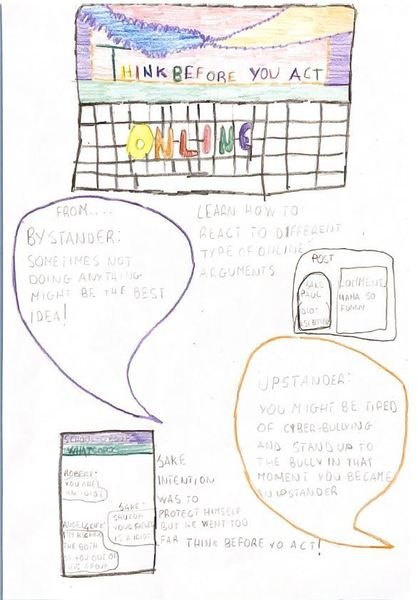 THINK BEFORE YOU ACT
ONLINE
FROM....
BYSTANDER:
SOMETIMES NOT
DOING ANYTHING
MIGHT BE THE BEST
IDEA!
LEARN HOW TO
REACT TO DIFFERENT
TYPE OF ONLINE
ARGUMENTS
POST
SAKE
PAUL
COMMENT
HAHA SO
FUNNY
UPSTANDER:
YOU MIGHT BE TIRED
OF CYBER-BULLYING
AND STAND UP TO
THE BULLY IN THAT
MOMENT YOU BECAME
UPSTANDER
SCHOOL GROUP
WHATSAPP
ROBERT:
YOU ARE
AN IDIOT
SAKE:
IS A IDIOT
THE BOTH
SAKE
INTENTION
WAS TO
PROTECT HIMSELF
BUT HE WENT TOO
FAR THINK BEFORE YO ACT!